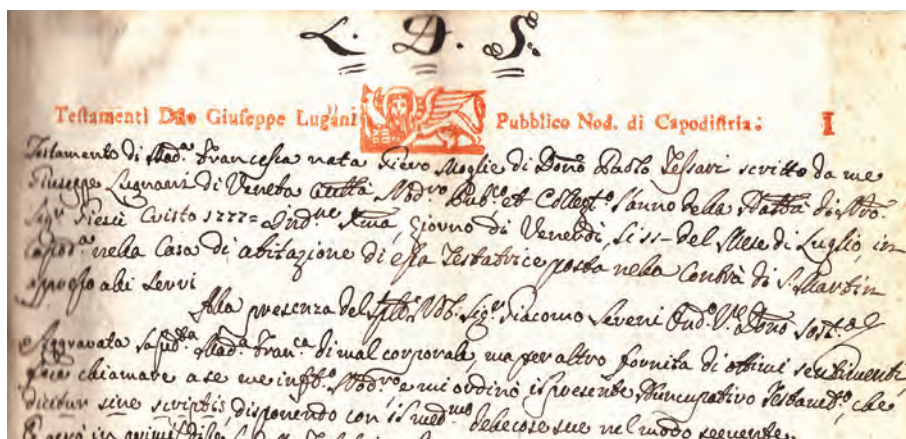 L. D. S.
Testamenti D Giuseppe Lugnani Pubblico Nod. di Capodistria: I
Testamento di Mad.a Francesca nata Piero Moglie di Dono Paolo Tessari scritto da me
Giuseppe Lugnani di Veneta Nod.ro Pub.co et Colleg.to l'anno della di Nro.
Sig.r Giesù Cristo 1777= Ind.ne Xma, Giorno di Venerdì, li 11- del Mese di Luglio, in
Capod.a nella Casa di abitazione di essa Testatrice posta nella Contrà di S. Martin
appresso alli Servi
Alla presenza del Nob. Sig.r Giacomo
Aggravata la Mad.a Fran.ca di mal corporale, ma per altro fornita di ottimi sentimenti,
fece chiamare a se me Nod.ro e mi ordinò il presente Nuncupativo che
dicitur sine scriptis, disponendo con il med.mo delle cose sue nel modo seguente: